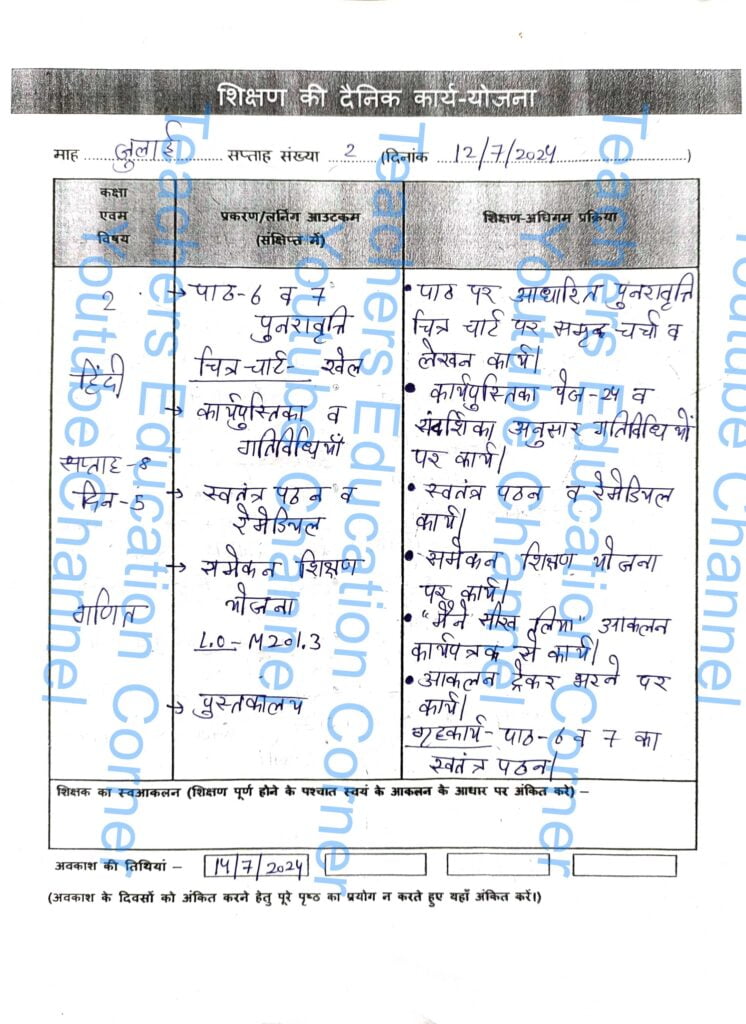 शिक्षण की दैनिक कार्य-योजना
माह जुलाई सप्ताह संख्या 2 (दिनांक 12/7/2024)
कक्षा
एवम
विषय
प्रकरण/लर्निंग आउटकम
(संक्षिप्त में)
शिक्षण-अधिगम प्रक्रिया
2
हिंदी
सप्ताह-8
दिन-5
गणित
→ पाठ-6 व 7
पुनरावृत्ति
चित्र चार्ट- खेल
→ कार्यपुस्तिका व
गतिविधियाँ
→ स्वतंत्र पठन व
रेमेडियल
→ समेकन शिक्षण
योजना
L.O-M201.3
→ पुस्तकालय
• पाठ पर आधारित पुनरावृत्ति
चित्र चार्ट पर समृद्ध चर्चा व
लेखन कार्य।
• कार्यपुस्तिका पेज-24 व
संदर्शिका अनुसार गतिविधियों
पर कार्य।
• स्वतंत्र पठन व रेमेडियल
कार्य।
• समेकन शिक्षण योजना
पर कार्य।
• "मैंने सीख लिया" आकलन
कार्यपत्रक से कार्य।
• आकलन ट्रेकर भरने पर
कार्य।
गृहकार्य- पाठ-6 व 7 का
स्वतंत्र पठन।
शिक्षक का स्वआकलन (शिक्षण पूर्ण होने के पश्चात स्वयं के आकलन के आधार पर अंकित करे) –
अवकाश की तिथियां – 14/7/2024
(अवकाश के दिवसों को अंकित करने हेतु पूरे पृष्ठ का प्रयोग न करते हुए यहाँ अंकित करें।)
Teachers Education Corner
Youtube Channel
Teachers Education Corner
Youtube Channel
Teachers Education Corner
Youtube Channel